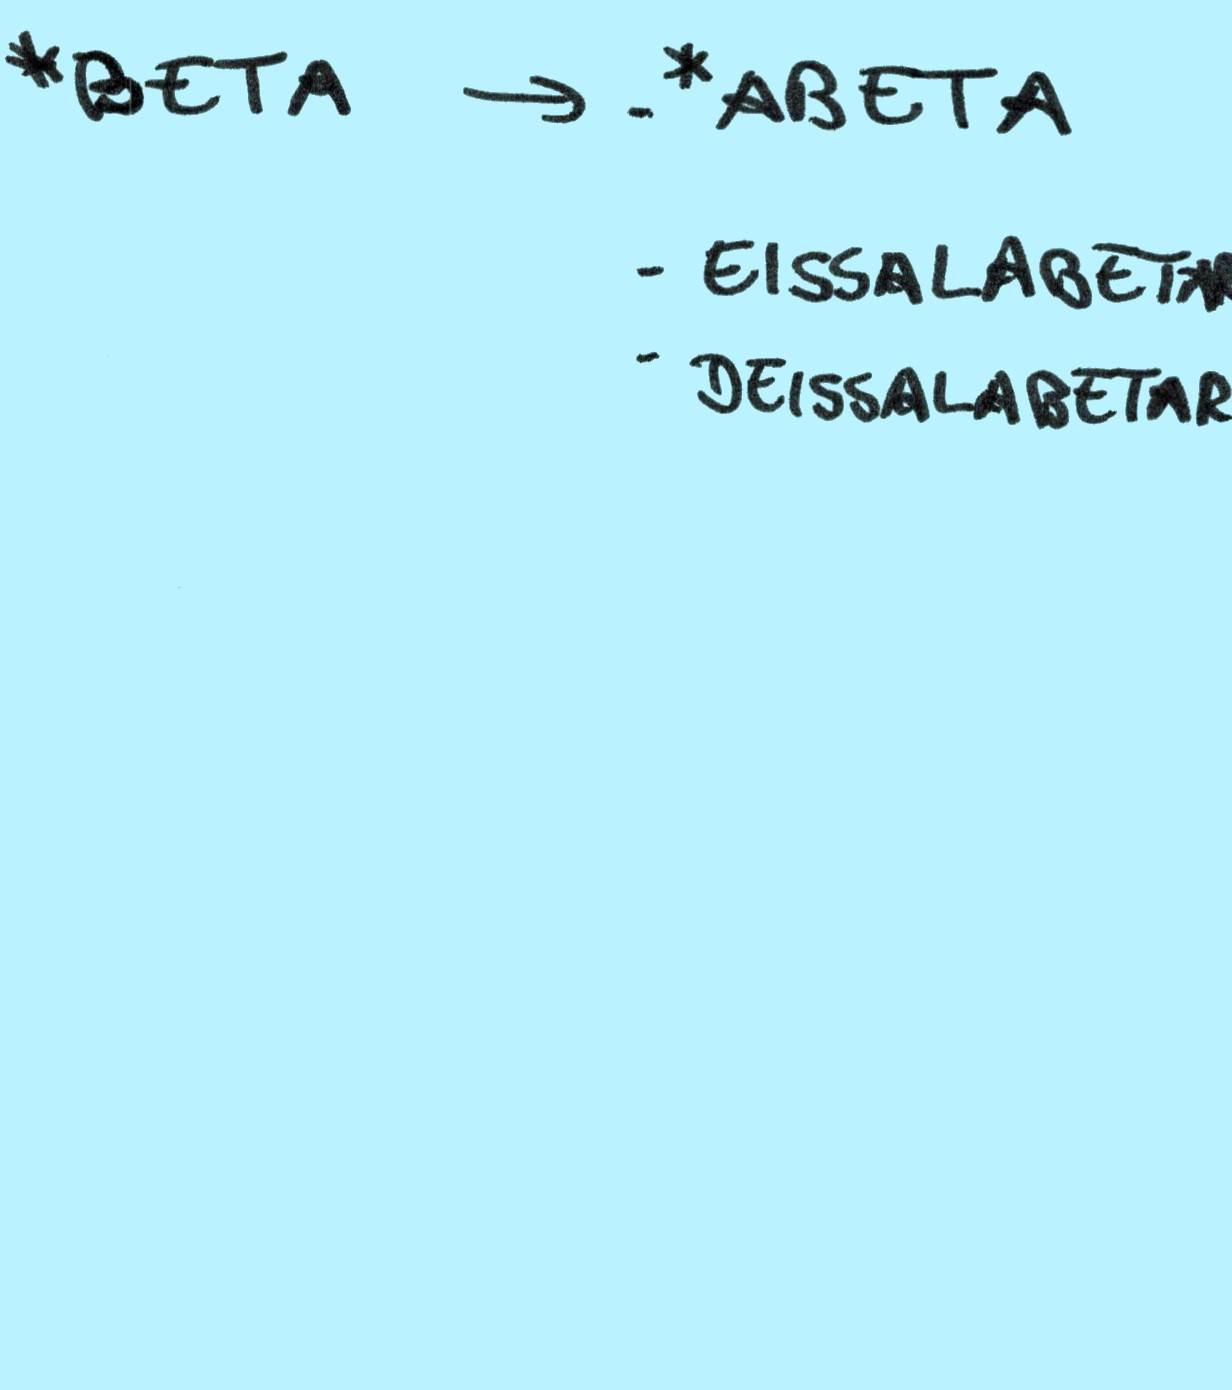 *BETA → - *ABETA
- EISSALABETAR
- DEISSALABETAR